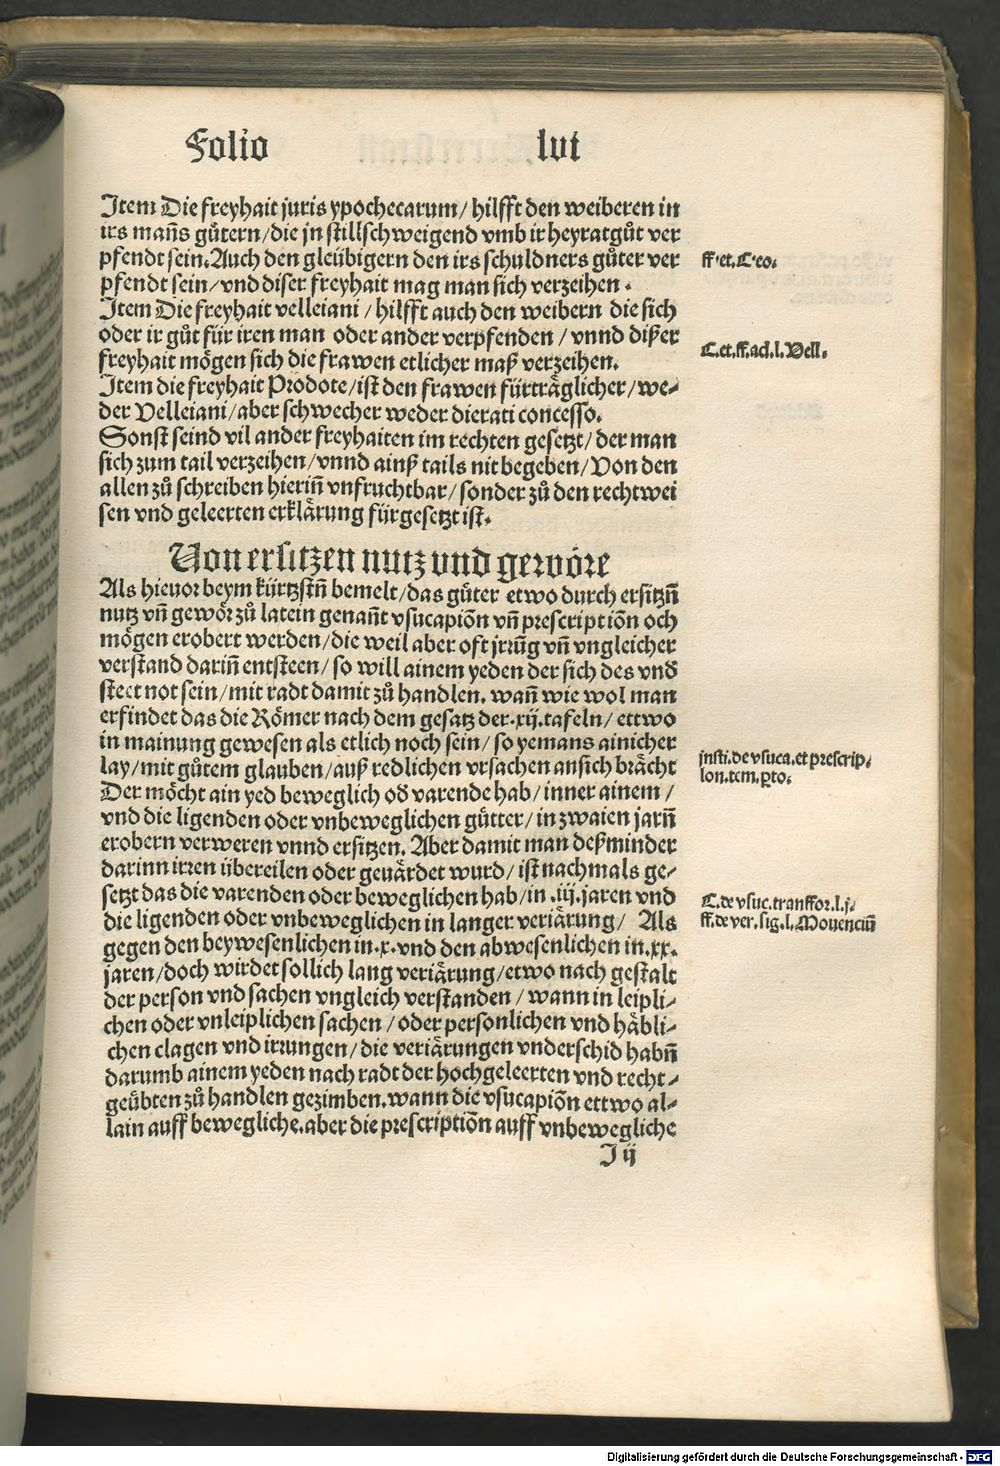 Folio lvi
Item Die freyhait juris ypochecarum / hilfft den weiberen in
irs mañs gůtern / die jn stillschweigend vmb ir heyratgůt ver
pfendt sein. Auch den gleübigern den irs schuldners gůter ver
pfendt sein / vnd diser freyhait mag man sich verzeihen.
ff. et. C. eo.
Item Die freyhait velleiani / hilfft auch den weibern die sich
oder ir gůt für iren man oder ander verpfenden / vnnd dißer
freyhait mögen sich die frawen etlicher maß verzeihen.
C. et. ff. ad. l. Vell.
Item die freyhait Prodote / ist den frawen fürträglicher / we-
der Velleiani / aber schwecher weder dierati concesso.
Sonst seind vil ander freyhaiten im rechten gesetzt / der man
sich zum tail verzeihen / vnnd ainß tails nit begeben / Von den
allen zů schreiben hieriñ vnfruchtbar / sonder zů den rechtwei
sen vnd geleerten erklärung fürgesetzt ist.
Von ersitzen nutz vnd gewöre
Als hieuor beym kürtzstñ bemelt / das güter etwo durch ersitzñ
nutz vñ gewör zů latein genañt vsucapiõn vñ prescriptiõn och
mögen erobert werden / die weil aber oft jrrũg vñ vngleicher
verstand dariñ entsteen / so will ainem yeden der sich des vnd̄
steet not sein / mit radt damit zů handlen. wañ wie wol man
erfindet das die Römer nach dem gesatz der .xij. tafeln / ettwo
in mainung gewesen als etlich noch sein / so yemans ainicher
lay / mit gůtem glauben / auß redlichen vrsachen ansich brächt
Der möcht ain yed beweglich od̄ varende hab / inner ainem /
vnd die ligenden oder vnbeweglichen gütter / in zwaien jarñ
erobern verweren vnnd ersitzen. Aber damit man deßminder
darinn irren übereilen oder geuärdet wurd / ist nachmals ge-
setzt das die varenden oder beweglichen hab / in .iij. jaren vnd
die ligenden oder vnbeweglichen in langer veriärung / Als
gegen den beywesenlichen in .x. vnd den abwesenlichen in .xx.
jaren / doch wirdet sollich lang veriärung / etwo nach gestalt
der person vnd sachen vngleich verstanden / wann in leipli-
chen oder vnleiplichen sachen / oder personlichen vnd häbli-
chen clagen vnd irrungen / die veriärungen vnderschid habñ
darumb ainem yeden nach radt der hochgeleerten vnd recht-
geübten zů handlen gezimben. wann die vsucapiõn ettwo al-
lain auff bewegliche. aber die prescriptiõn auff vnbewegliche
jnsti. de vsuca. et prescrip.
lon. tem. ꝑto.
C. de vsuc. tranffor. l. j.
ff. de ver. sig. l. Mouenciũ
J ij
Digitalisierung gefördert durch die Deutsche Forschungsgemeinschaft - DFG